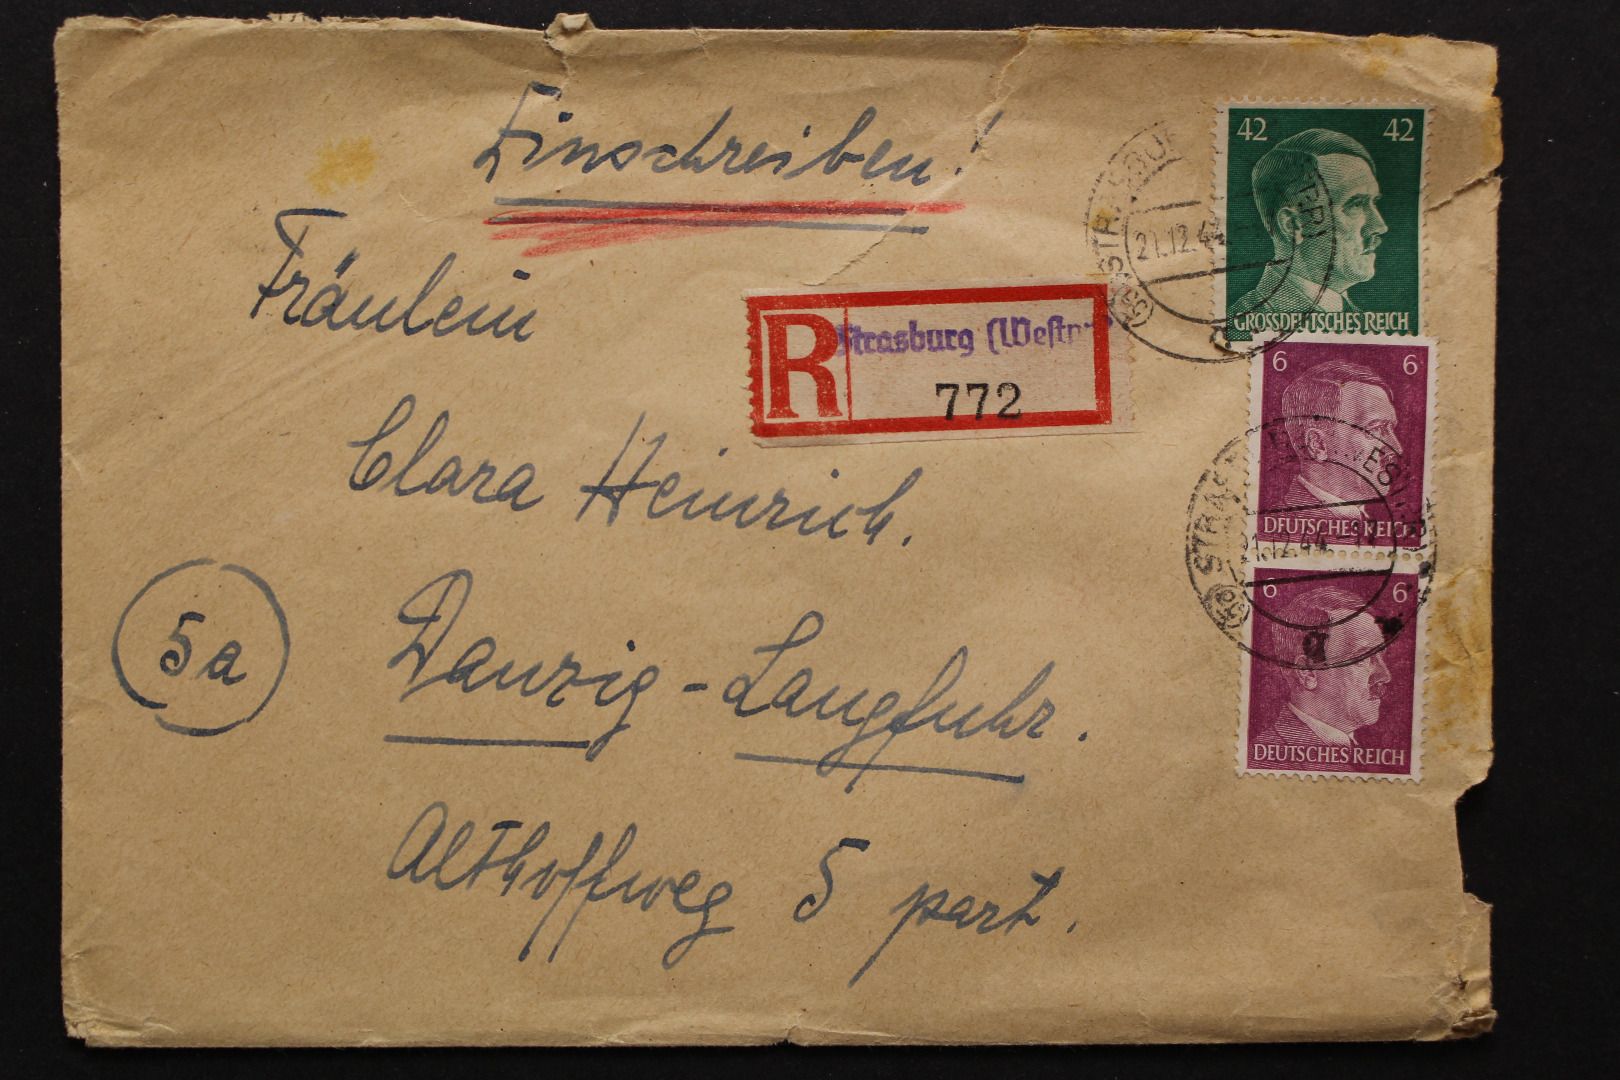 Einschreiben!
Fräulein
Clara Heinrich.
5a
Danzig-Langfuhr.
Althoffweg 5 part.
R
Strasburg (Westpr
772
42 42
GROSSDEUTSCHES REICH
21.12.44
6 6
DEUTSCHES REICH
21.12.44
6 6
DEUTSCHES REICH